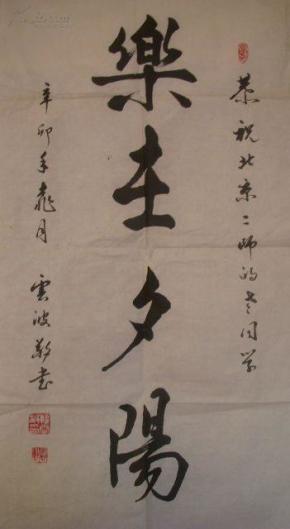 恭祝北京二师的老同学
樂在夕陽
辛卯年桃月
雲波敬书